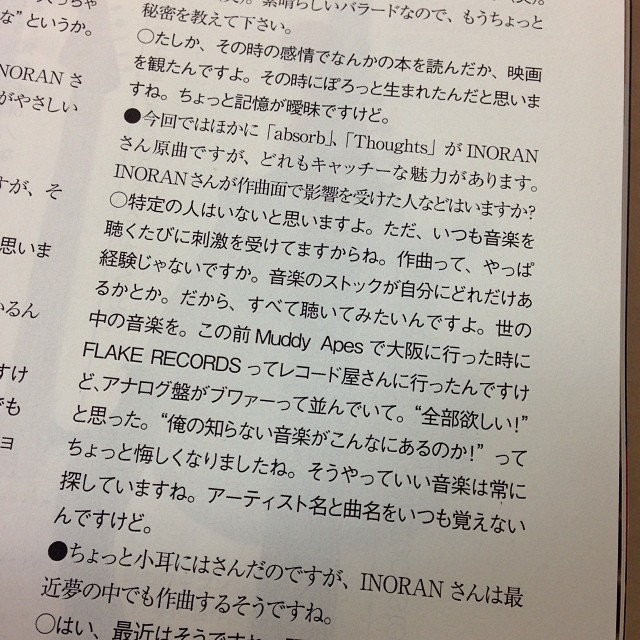 な”というか。
NORAN さ
がやさしい
すが、そ
思いま
いるん
すけ
でも
ョ
素晴らしいバラードなので、もうちょっと
秘密を教えて下さい。
○たしか、その時の感情でなんかの本を読んだか、映画
を観たんですよ。その時にぽろっと生まれたんだと思いま
すね。ちょっと記憶が曖昧ですけど。
●今回ではほかに「absorb」、「Thoughts」がINORAN
さん原曲ですが、どれもキャッチーな魅力があります。
INORANさんが作曲面で影響を受けた人などはいますか?
○特定の人はいないと思いますよ。ただ、いつも音楽を
聴くたびに刺激を受けてますからね。作曲って、やっぱ
経験じゃないですか。音楽のストックが自分にどれだけあ
るかとか。だから、すべて聴いてみたいんですよ。世の
中の音楽を。この前 Muddy Apes で大阪に行った時に
FLAKE RECORDS ってレコード屋さんに行ったんですけ
ど、アナログ盤がブワァーって並んでいて。“全部欲しい!”
と思った。“俺の知らない音楽がこんなにあるのか!” って
ちょっと悔しくなりましたね。そうやっていい音楽は常に
探していますね。アーティスト名と曲名をいつも覚えない
んですけど。
●ちょっと小耳にはさんだのですが、INORAN さんは最
近夢の中でも作曲するそうですね。
○はい、最近はそうですね。